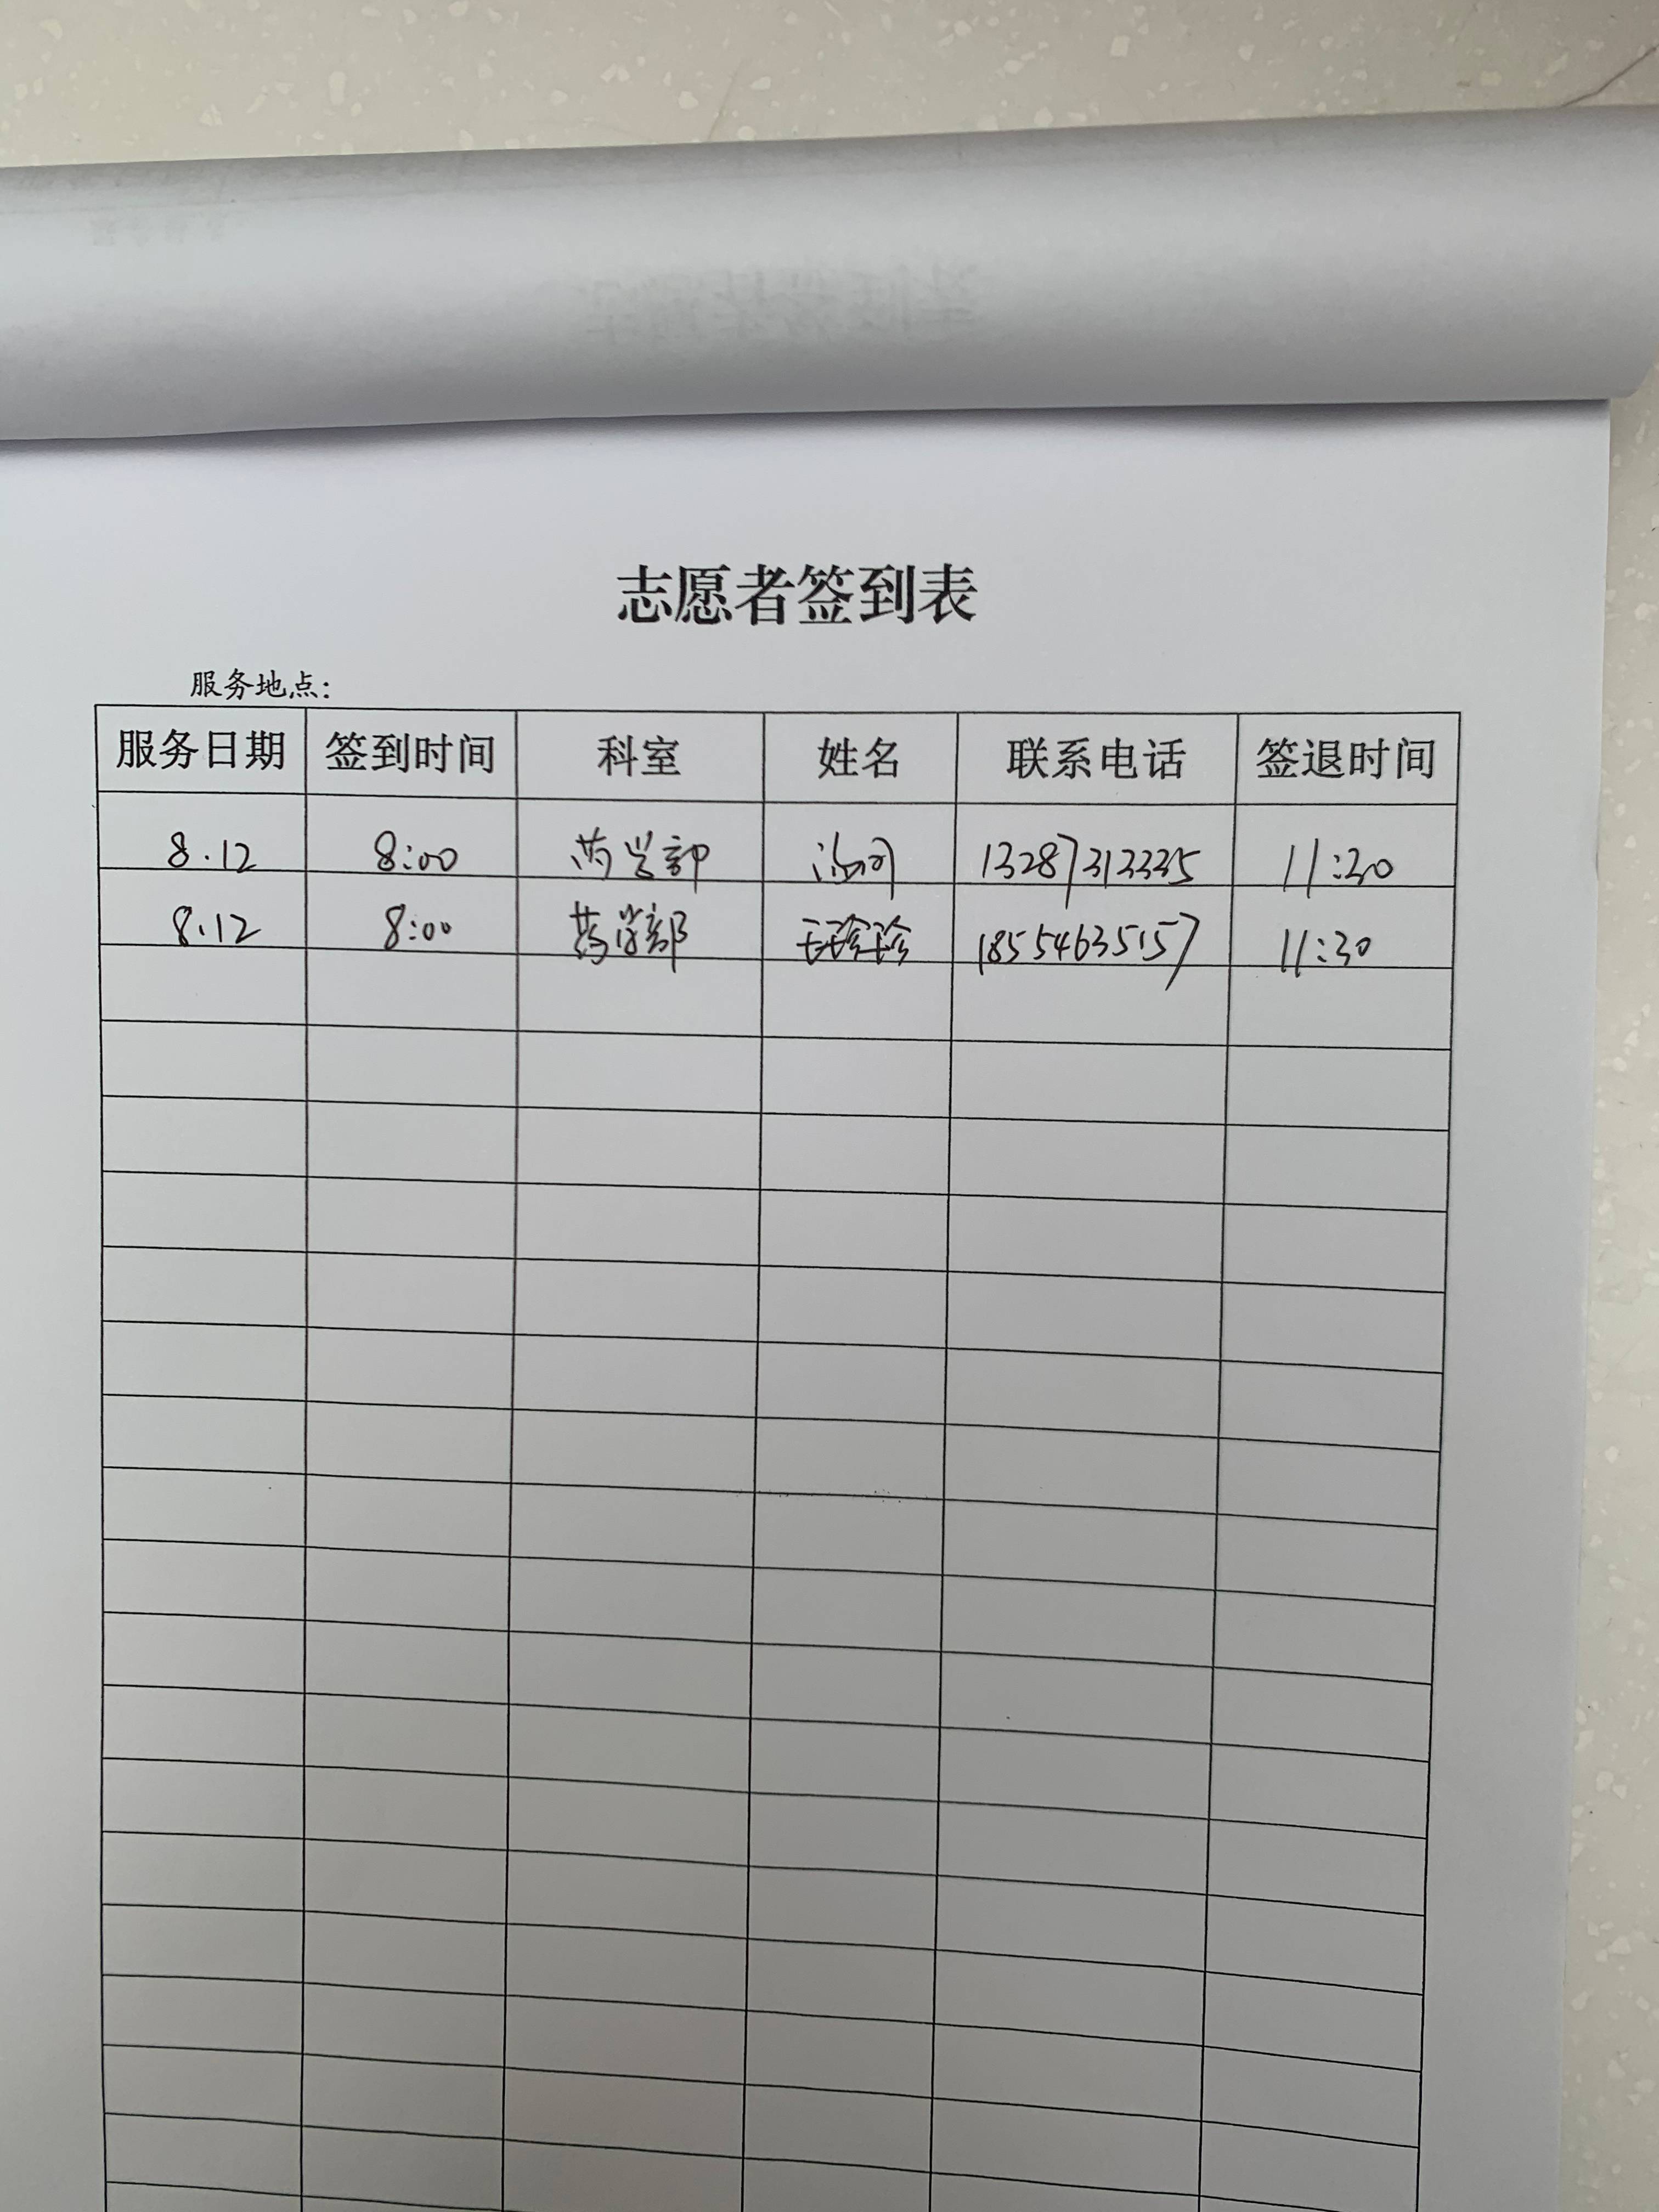 志愿者签到表
服务地点：
服务日期 签到时间 科室 姓名 联系电话 签退时间
8.12 8:00 药学部 13287312335 11:30
8.12 8:00 药学部 王珍珍 18554635157 11:30